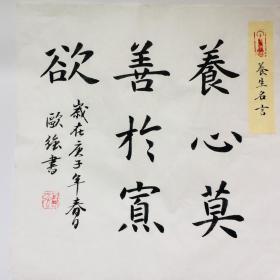 養生名言
養心莫
善於寡
欲
歲在庚子年春日
歐強書